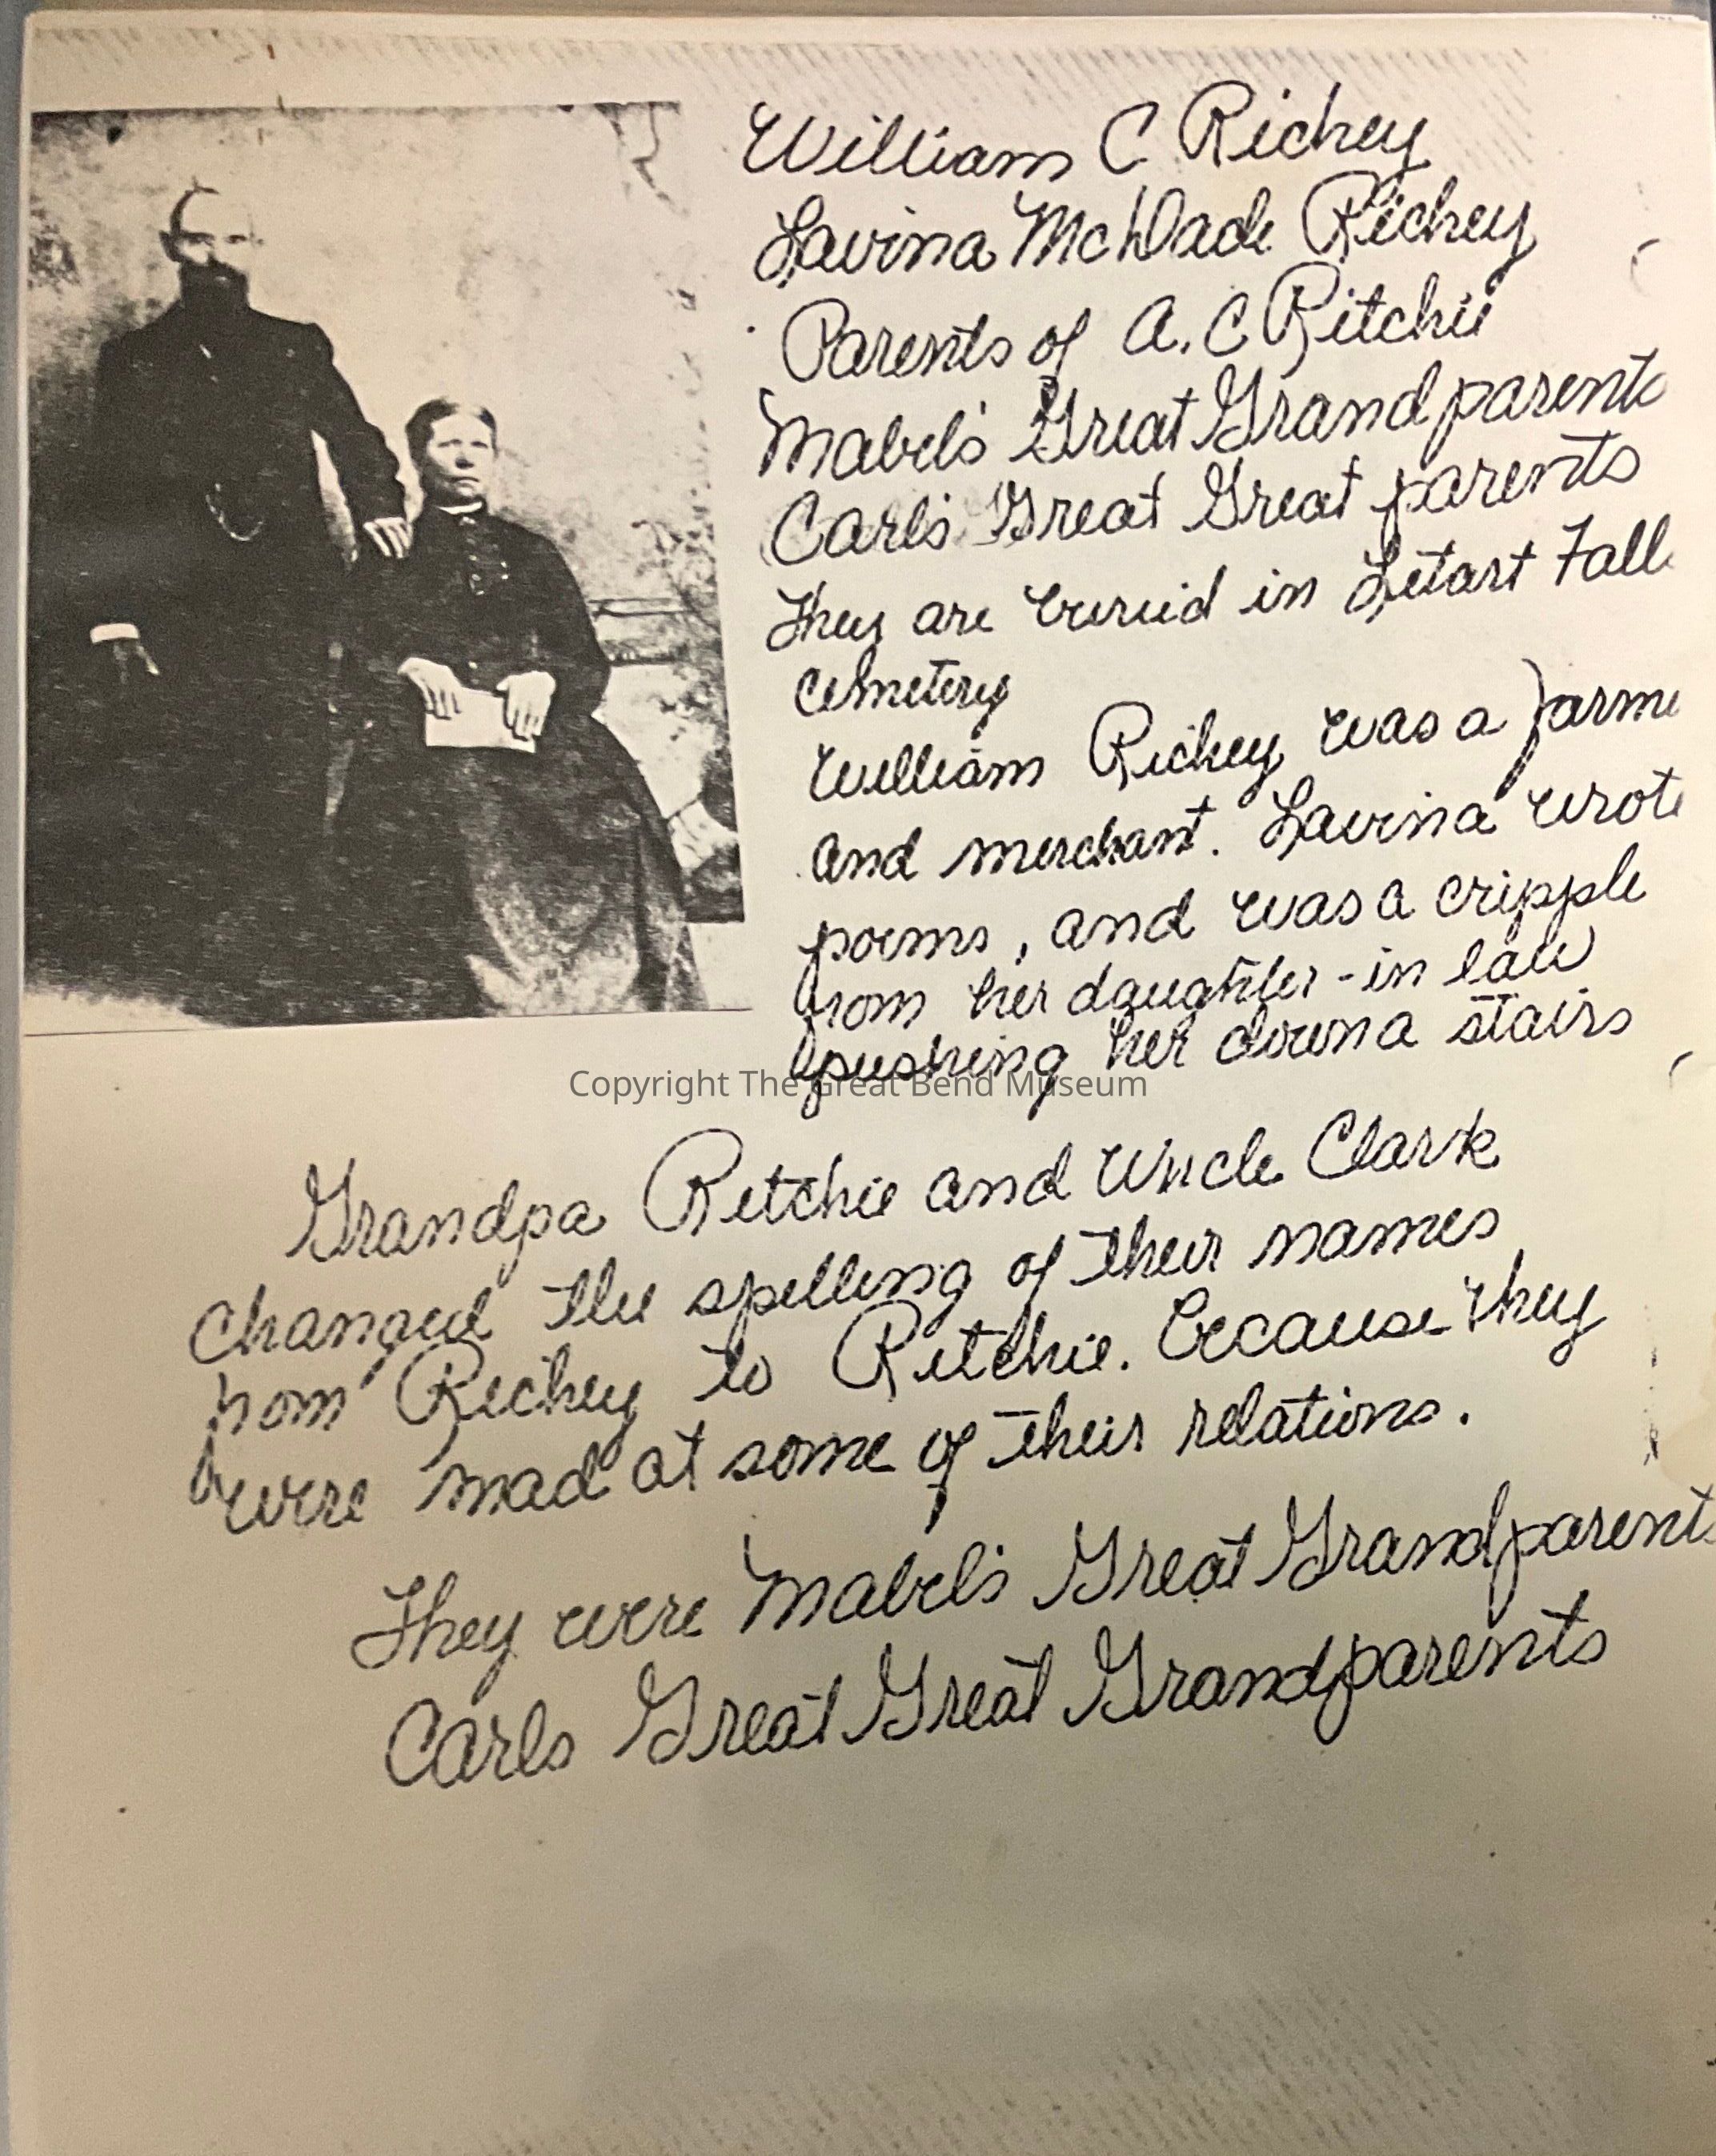 William C Richey
Lavina McDade Richey
Parents of A. C Ritchie
Mabel's Great Grandparents
Carl's Great Great parents
They are buried in Letart Fall
Cemetery
William Richey was a farme
and merchant. Lavina wrote
poems, and was a cripple
from her daughter-in law
pushing her down a stairs
Copyright The Great Bend Museum
Grandpa Ritchie and Uncle Clark
changed the spelling of their names
from Richey to Ritchie. because they
were mad at some of their relations.
They were Mabel's Great Grandparents
Carls Great Great Grandparents